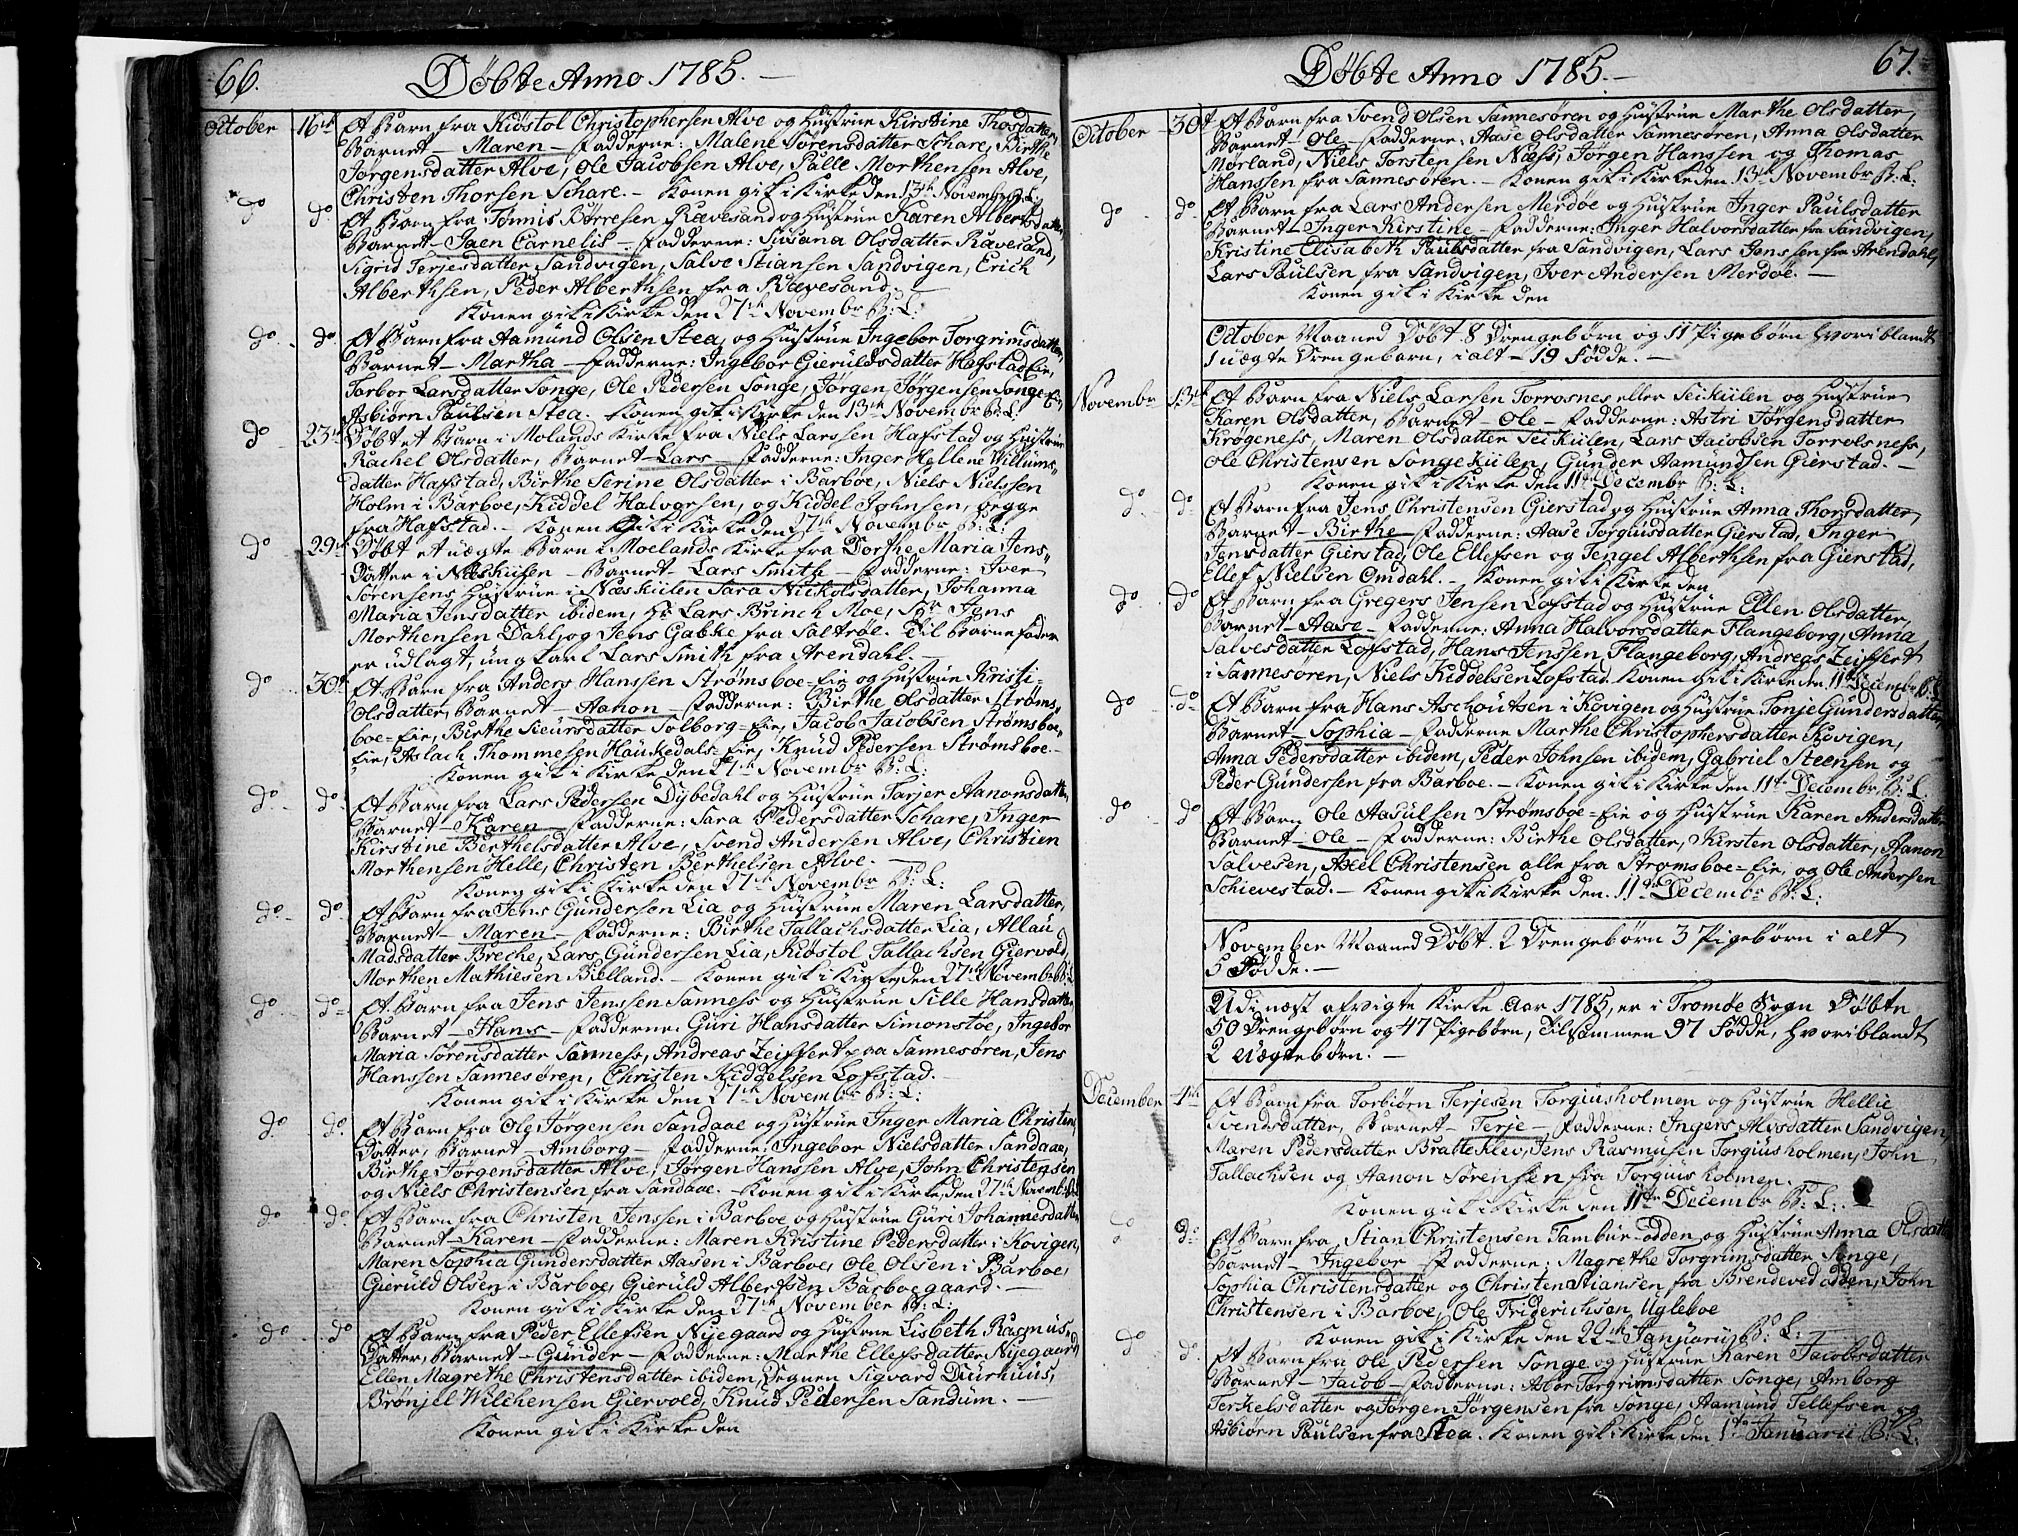 66.
Døbte Anno 1785.
October 16de Et Barn fra Kiøstol Christophersen Alve og Hustrue Kirstine Thorsdatter,
Barnet - Maren - Fadderne: Malene Sørensdatter Schare, Birthe
Jørgensdatter Alve, Ole Jacobsen Alve, Palle Morthensen Alve,
Christen Thorsen Schare. - Konen gik i Kirke den 13th Novembr B: L:
do do Et Barn fra Tønnis Børresen Rævesand og Hustrue Karen Albertsdatter,
Barnet - Jaen Cornelis - Fadderne: Susana Olsdatter Rævesand,
Sigrid Terjesdatter Sandvigen, Salve Stiansen Sandvigen, Erich
Alberthsen, Peder Alberthsen fra Rævesand. -
Konen gik i Kirke den 27th Novembr B: L:
do do Et Barn fra Aamund Olsen Stea, og Hustrue Ingebor Torgrimsdatter,
Barnet - Martha - Fadderne: Ingebor Gieruldsdatter Hafstad Eie,
Tarbor Larsdatter Songe, Ole Pedersen Songe, Jørgen Jørgensen Songe Eie,
Asbiørn Paulsen Stea. Konen gik i Kirke den 13th Novembr B: L:
do 23de Døbt et Barn i Molands Kirke fra Niels Larssen Hafstad og Hustrue
Rachel Olsdatter, Barnet - Lars - Fadderne: Inger Hellene Willums-
datter Hafstad, Birthe Serine Olsdatter i Barboe, Niels Nielssen
Holm i Barboe, Kiddel Halvorsen, og Kiddel Johnsen, begge
fra Hafstad. - Konen gik i Kirke den 27th Novembr B: L:
do 29de Døbt et uægte Barn i Moelands Kirke fra Dorthe Maria Jens-
Datter i Næskiilen - Barnet - Lars Smith - Fadderne: Iver
Sørensens Hustrue i Næskiilen Sara Nickolsdatter, Johanna
Maria Jensdatter ibidem, Hr Lars Brinch Moe, Sr Jens
Morthensen Dahl, og Jens Gabke fra Saltrøe. Til Barnefader
er udlagt, ung Karl Lars Smith fra Arendahl. -
do 30te Et Barn fra Anders Hanssen Strømsboe-Eie og Hustrue Kristi-
Olsdatter, Barnet - Aanon - Fadderne: Birthe Olsdatter Strøms-
boe-Eie, Birthe Sieursdatter Solborg-Eie, Jacob Jacobsen Strømsboe-
Eie, Aslach Thommesen Haukedals-Eie, Knud Pedersen Strømsboe-
Eie, Konen gik i Kirke den 27th Novembr B: L:
do do Et Barn fra Lars Pedersen Dybedahl og Hustrue Tarjer Aanonsdatter,
Barnet - Karen - Fadderne: Sara Pedersdatter Schare, Inger
Kirstine Berthelsdatter Alve, Svend Andersen Alve, Christien
Morthensen Helle, Christen Berthelsen Alve. -
Konen gik i Kirke den 27th Novembr B: L:
do do Et Barn fra Jens Gundersen Lia og Hustrue Maren Larsdatter,
Barnet - Maren - Fadderne: Birthe Tallachsdatter Lia, Allau
Madsdatter Breche, Lars Gundersen Lia, Kiøstol Tallachsen Giervold,
Morthen Mathiesen Bielland. - Konen gik i Kirke den 27th Novembr B: L:
do do Et Barn fra Jens Jenssen Sanness og Hustrue Sille Hansdatter
Barnet - Hans - Fadderne: Guri Hansdatter Simonstøe, Ingebor
Maria Sørensdatter Sanness, Andreas Zeiffert paa Sannesøren, Jens
Hanssen Sannesøren, Christen Kiddelsen Lofstad. -
Konen gik i Kirke den 27th Novembr B: L:
do do Et Barn fra Ole Jørgensen Sandaae og Hustrue Inger Maria Christen
Datter, Barnet - Amborg - Fadderne: Ingebor Nielsdatter Sandaae,
Birthe Jørgensdatter Alve, Jørgen Hanssen Alve, John Christensen
og Niels Christensen fra Sandaae. - Konen gik i Kirke den 27th Novembr B: L:
do do Et Barn fra Christen Jenssen i Barboe og Hustrue Guri Johannesdatter
Barnet - Karen - Fadderne: Maren Kristine Pedersdatter i Kovigen,
Maren Sophia Gundersdatter Aasen i Barboe, Ole Olsen i Barboe,
Gieruld Olsen i Barboe, Gieruld Albertsen Barboegaard. -
Konen gik i Kirke den 27th November B: L:
do do Et Barn fra Peder Ellefsen Nyegaard og Hustrue Lisbeth Rasmus-
Datter, Barnet - Gunder - Fadderne: Marthe Ellefsdatter Nyegaard,
Ellen Magrethe Christensdatter ibidem, Degnen Sigvard Duurhuus,
Brønjel Wilchensen Giervold, Knud Pedersen Sandum. -
Konen gik i Kirke den
67.
Døbte Anno 1785. -
October 30te Et Barn fra Svend Olsen Sannesøren og Hustrue Marthe Olsdatter,
Barnet - Ole - Fadderne: Aase Olsdatter Sannesøren, Anna Olsdatter
Mørland, Niels Torstensen Næss, Jørgen Hanssen og Thomas
Hanssen fra Sannesøren. - Konen gik i Kirke den 13th Novembr B: L:
do do Et Barn fra Lars Andersen Merdøe og Hustrue Inger Paulsdatter
Barnet - Inger Kirstine - Fadderne: Inger Halvorsdatter fra Sandvigen,
Kristine Elisabeth Paulsdatter fra Sandvigen, Lars Jenssen fra Arendahl,
Lars Paulsen fra Sandvigen, Iver Andersen Merdøe. -
Konen gik i Kirke den
October Maaned Døbt 8 Drengebørn og 11 Pigebørn hvoriblandt
1 uægte Drengebarn, i alt - 19 Fødde. -
Novembr 13de Et Barn fra Niels Larsen Torrosnes eller Seikiilen og Hustrue
Karen Olsdatter, Barnet - Ole - Fadderne: Astri Jørgensdatter
Krogeness, Maren Olsdatter Seikiilen, Lars Jacobsen Torrolsness,
Ole Christensen Songekiilen, Gunder Aamundsen Gierstad. -
Konen gik i Kirke den 11te Decembr B: L:
do do Et Barn fra Jens Christensen Gierstad og Hustrue Anna Thorsdatter,
Barnet - Birthe - Fadderne: Aase Torgiusdatter Gierstad, Inger
Jensdatter Gierstad, Ole Ellefsen og Tengel Alberthsen fra Gierstad,
Ellef Nielsen Omdahl. - Konen gik i Kirke den
do do Et Barn fra Gregers Jensen Lofstad og Hustrue Ellen Olsdatter,
Barnet - Aase - Fadderne: Anna Halvorsdatter Flangeborg, Anna
Salvesdatter Lofstad, Hans Jenssen Flangeborg, Andreas Zeiffert
i Sannesøren, Niels Kiddelsen Lofstad. Konen gik i Kirke den 11te Decembr B: L:
do do Et Barn fra Hans Aschoutsen i Kovigen og Hustrue Tonje Gundersdatter,
Barnet - Sophia - Fadderne Marthe Christophersdatter Kovigen,
Anna Pedersdatter ibidem, Peder Johnsen ibidem, Gabriel Steensen og
Peder Gundersen fra Barboe. - Konen gik i Kirke den 11te Decembr B: L:
do do Et Barn Ole Aasulsen Strømsboe-Eie og Hustrue Karen Andersdatter
Barnet - Ole - Fadderne: Birthe Olsdatter, Kirsten Olsdatter, Aanon
Salvesen, Axel Christensen alle fra Strømsboe-Eie, og Ole Andersen
Schievestad. - Konen gik i Kirke den 11te Decembr B: L:
November Maaned Døbt 2 Drengebørn 3 Pigebørn i alt
5 Fødde. -
Udi næst afvigte Kirke Aar 1785, er i Tromøe Sogn Døbte
50 Drengebørn og 47 Pigebørn, Tilsammen 97 Fødde, hvoriblandt
2 uægtebørn. -
December 4th Et Barn fra Torbiørn Terjesen Torgiusholmen og Hustrue Hellie
Svendsdatter, Barnet - Terje - Fadderne: Inger Alvsdatter Sandvigen,
Maren Pedersdatter Bratteklev, Jens Rasmusen Torgiusholmen, John
Tallachsen og Aanon Sørensen fra Torgiusholmen.
Konen gik i Kirke den 11te Decembr B: L:
do do Et Barn fra Stian Christensen Tambur-odden og Hustrue Anna Olsdatter
Barnet - Ingebor - Fadderne: Magrethe Torgrimsdatter Songe,
Sophia Christensdatter og Christen Stiansen fra Brendevedodden, John
Christensen i Barboe, Ole Friderichsen Ugleboe
Konen gik i Kirke den 22th Januarii B: L:
do do Et Barn fra Ole Pedersen Songe og Hustrue Karen Jacobsdatter
Barnet - Jacob - Fadderne: Asbor Torgrimsdatter Songe, Amborg
Terkelsdatter og Jørgen Jørgensen fra Songe, Aamund Tellefsen og
Asbiørn Paulsen fra Stea. Konen gik i Kirke den 1te Januarii B: L: